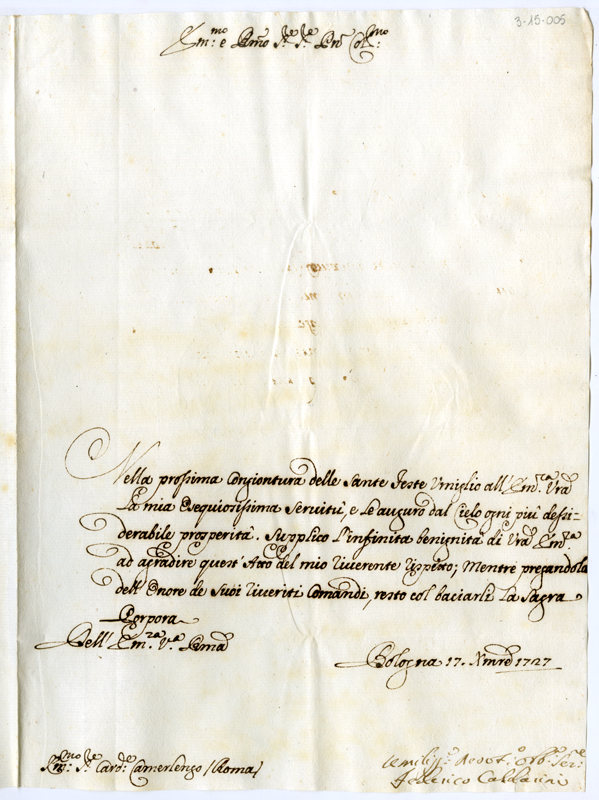 3-15-005
Em:mo e Rmo Sr:e Sr:e Pne Col:mo
Nella prossima Congiontura delle Sante Feste Vmiglio all'Em:za Vrã
La mia Ossequiosissima Servitù, e Le auguro dal Cielo ogni più dessi-
derabile prosperità. Supplico L'infinita benignità di Vrã Em:za
ad agradire quest'Atto del mio riverente rispetto; Mentre pregandola
dell'Onore de Suoi riveriti Comandi, resto col baciarli La Sagra
Porpora
Dell'Em:za V:a Rma
Bologna 17. Nmre 1727
Em:mo Sr:e Card:e Camerlengo /Roma/
Vmiliss:o Devot:o Obb:o Ser:e
Federico Calderini